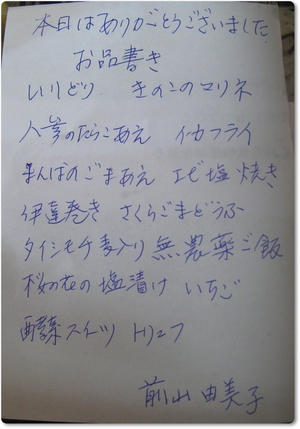 本日はありがとうございました
お品書き
いりどり きのこのマリネ
人参のたらこあえ イカフライ
まんばのごまあえ エビ塩焼き
伊達巻き さくらごまどうふ
ダイシモチ麦入り無農薬ご飯
桜の花の塩漬け いちご
酵素スイーツ トリュフ
前山 由美子